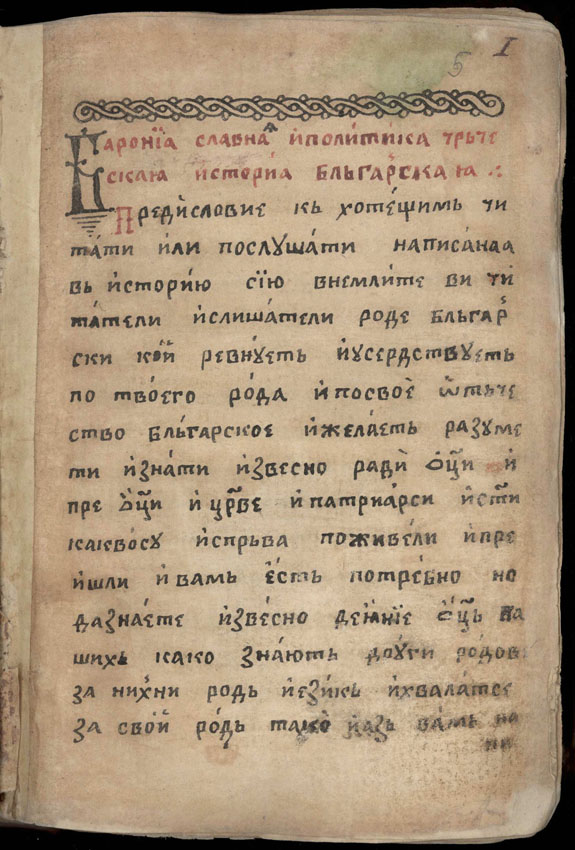 5 I
Баронїа славна и политика трьче
скаꙗ исторїа бльгарскаꙗ :·
Предисловие кь хотещимь чи
тати или послушати написанаа
вь историю сїю внемлите ви чи
татели ислишатели роде бльгар
ски кои ревнуеть иусердствуеть
по твоего рода ипосвое ѿтьче
ство бльгарское ижелаеть разуме
ти изнати извесно ради ѻци и
пре ѻци и црве и патриарси исти
каквосу испрьва поживели ипре
ишли и вамь есть потребно но
дазнаете извесно деꙗние ѻць на
шихь како знають други родов
за нихни родь иезикь ихвалатсе
за свои родь тако иазь вамь на
пи